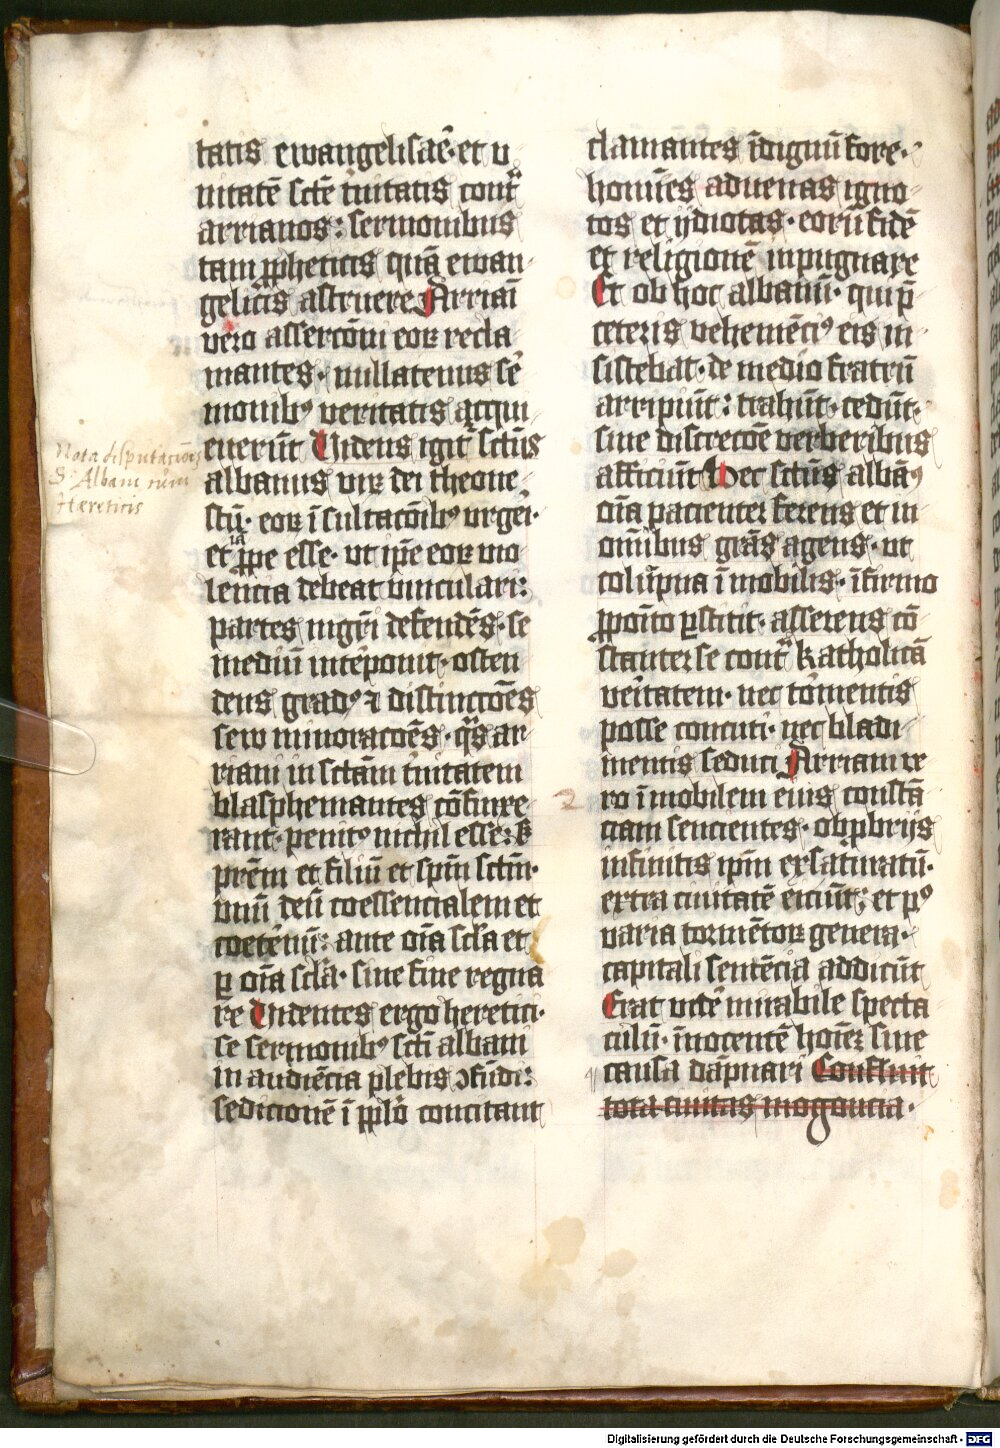 tatis ewangelisaē·et v
nitatē sctē t'nitatis cont^a
arrianos: sermonibus
tam ꝓpheticis quā ewan
gelicis astruere Arriani
vero assercōni eoꝝ recla
mantes· nullatenus s'
monibꝰ veritatis acqui
everūt Videns igit^r sctūs
albanus vir dei theone
stū· eoꝝ īsultacōibꝰ vrgeri·
et ꝓpe esse· vt ip̄e eoꝝ vio
ia
lencia debeat vinculari:
partes mgr̄i defendēs· se
mediū int'ponit· osten
dens gradꝰ ⁊ distinccōes
sew minoracōes· q^as ar
riani in sctām t'nitatem
blasphemantes cōfinxe
rant· penitꝰ nichil esse: ß
prēm et filiū et spm̄ sctm̄·
vnū deū coessencialem et
coet'nū: ante oīa scl̄a et
ꝑ oīa scl̄a· sine fine regna
re Videntes ergo heretici·
se sermonibꝰ scti albani
in audiēcia plebis ↄfūdi:
sedicionē ī ppl̄o concitant
Nota disputacion͞s
S. Albani cum
Hæreticis
clamantes īdignū fore·
homīes aduenas igno
tos et ydiotas· eorū fidē
et religionē inpugnare
Et ob hoc albanū· qui p̄
ceteris vehemēciꝰ eis in
sistebat· de medio fratrū
arripiūt: trahūt· cedūt·
sine discrecōe verberibus
afficiūt Hec sctūs albāꝰ
oīa pacienter ferens et in
omībus grās agens· vt
colūpna īmobilis· īfirmo
ꝓpoīto ꝑstitit· asserens cō
stanter se cont^a katholicā
veritatem· nec tormentis
posse concuti· nec bladi
mentis seduci Arriani ve
ro īmobilem eius constā
ciam sencientes· obprbrijs
infinitis ipm̄ exsaturatū·
extra ciuitatē eiciūt: et pꝰ
varia tormētoꝝ genera·
capitali sentēcia addicūt
Erat vtē mirabile specta
culū· īnocentē hoīem sine
causa dāpnari Confluit
tota ciuitas mogoncia·
Digitalisierung gefördert durch die Deutsche Forschungsgemeinschaft - DFG